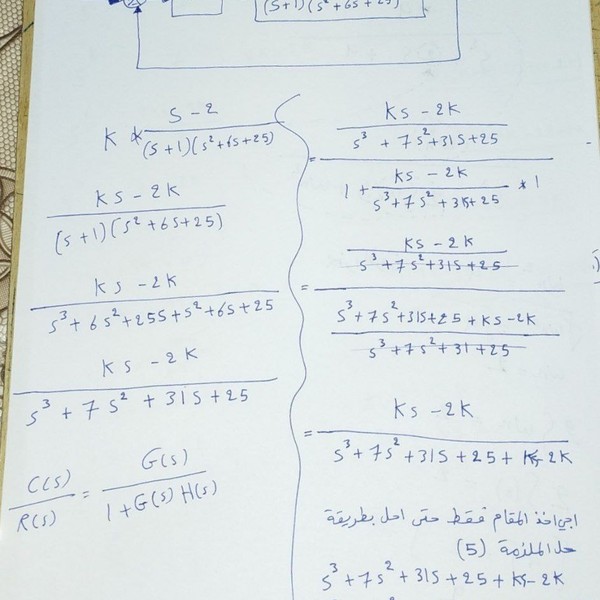 (S+1)(S²+6S+25)
K * S-2
(S+1)(S²+6S+25)
KS-2K
(S+1)(S²+6S+25)
KS-2K
S³+6S²+25S+S²+6S+25
KS-2K
S³+7S²+31S+25
C(S)
R(S)
=
G(S)
1+G(S)H(S)
KS-2K
S³+7S²+31S+25
=
1+
KS-2K
S³+7S²+31S+25
*1
KS-2K
S³+7S²+31S+25
=
S³+7S²+31S+25+KS-2K
S³+7S²+31+25
=
KS-2K
S³+7S²+31S+25+KS-2K
اجي اخذ المقام فقط حتى احل بطريقة
حل الملزمة (5)
S³+7S²+31S+25+KS-2K